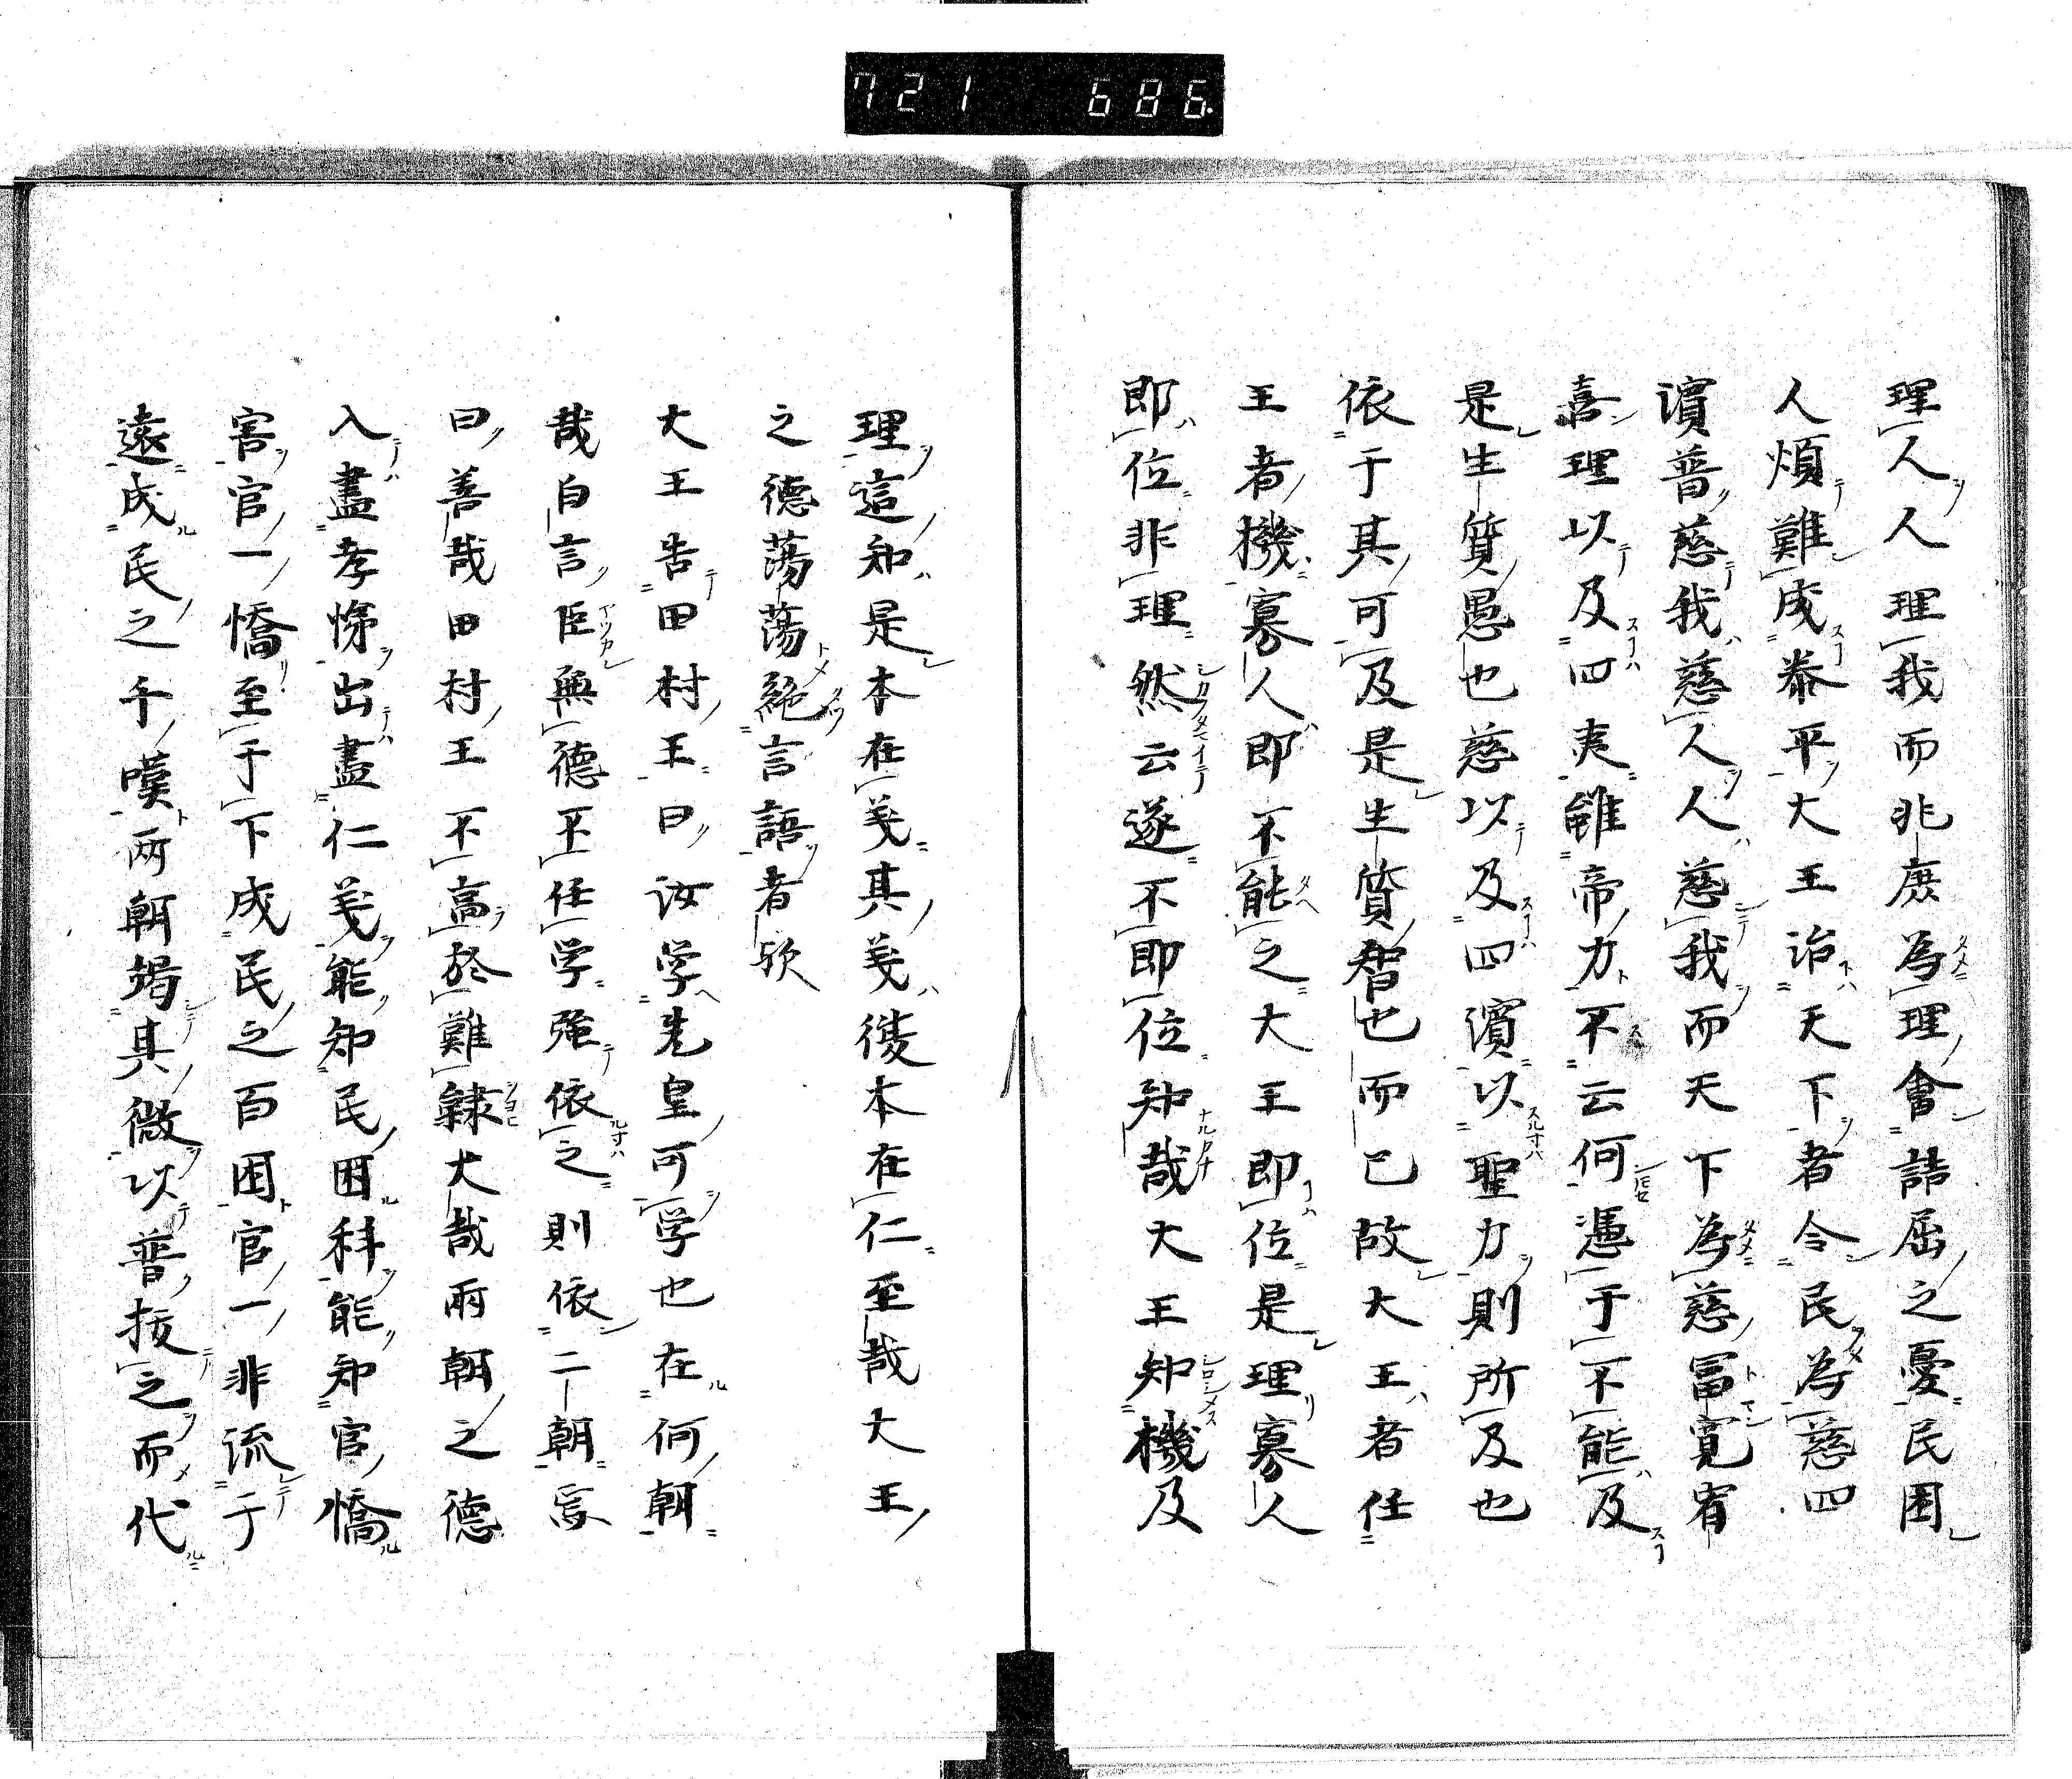 721 686.
理人人理我而非庶為理會詰屈之憂民困
人煩難成泰平大王治天下者令民為慈四
濵普慈我慈人人慈我而天下為慈冨寛宥
喜理以及四夷雖帝力不云何憑于不能及
是生質愚也慈以及四濵以聖力則所及也
依于其可及是生質智也而已故大王者任
王者機寡人即不能之大王即位是理寡人
即位非理然云遂不即位知哉大王知機及
理這知是本在義其義後本在仁至哉大王
之德蕩蕩絶言語者欤
大王告田村王曰汝學先皇可学也在何朝
哉白言臣無德不任学強依之則依二朝焉
曰善哉田村王不高於難隷大哉兩朝之德
入盡孝悌出盡仁義能知民困科能知官憍
害官一憍至于下成民之百困官一非流于
遠成民之千嘆兩朝竭其微以普拔之而代